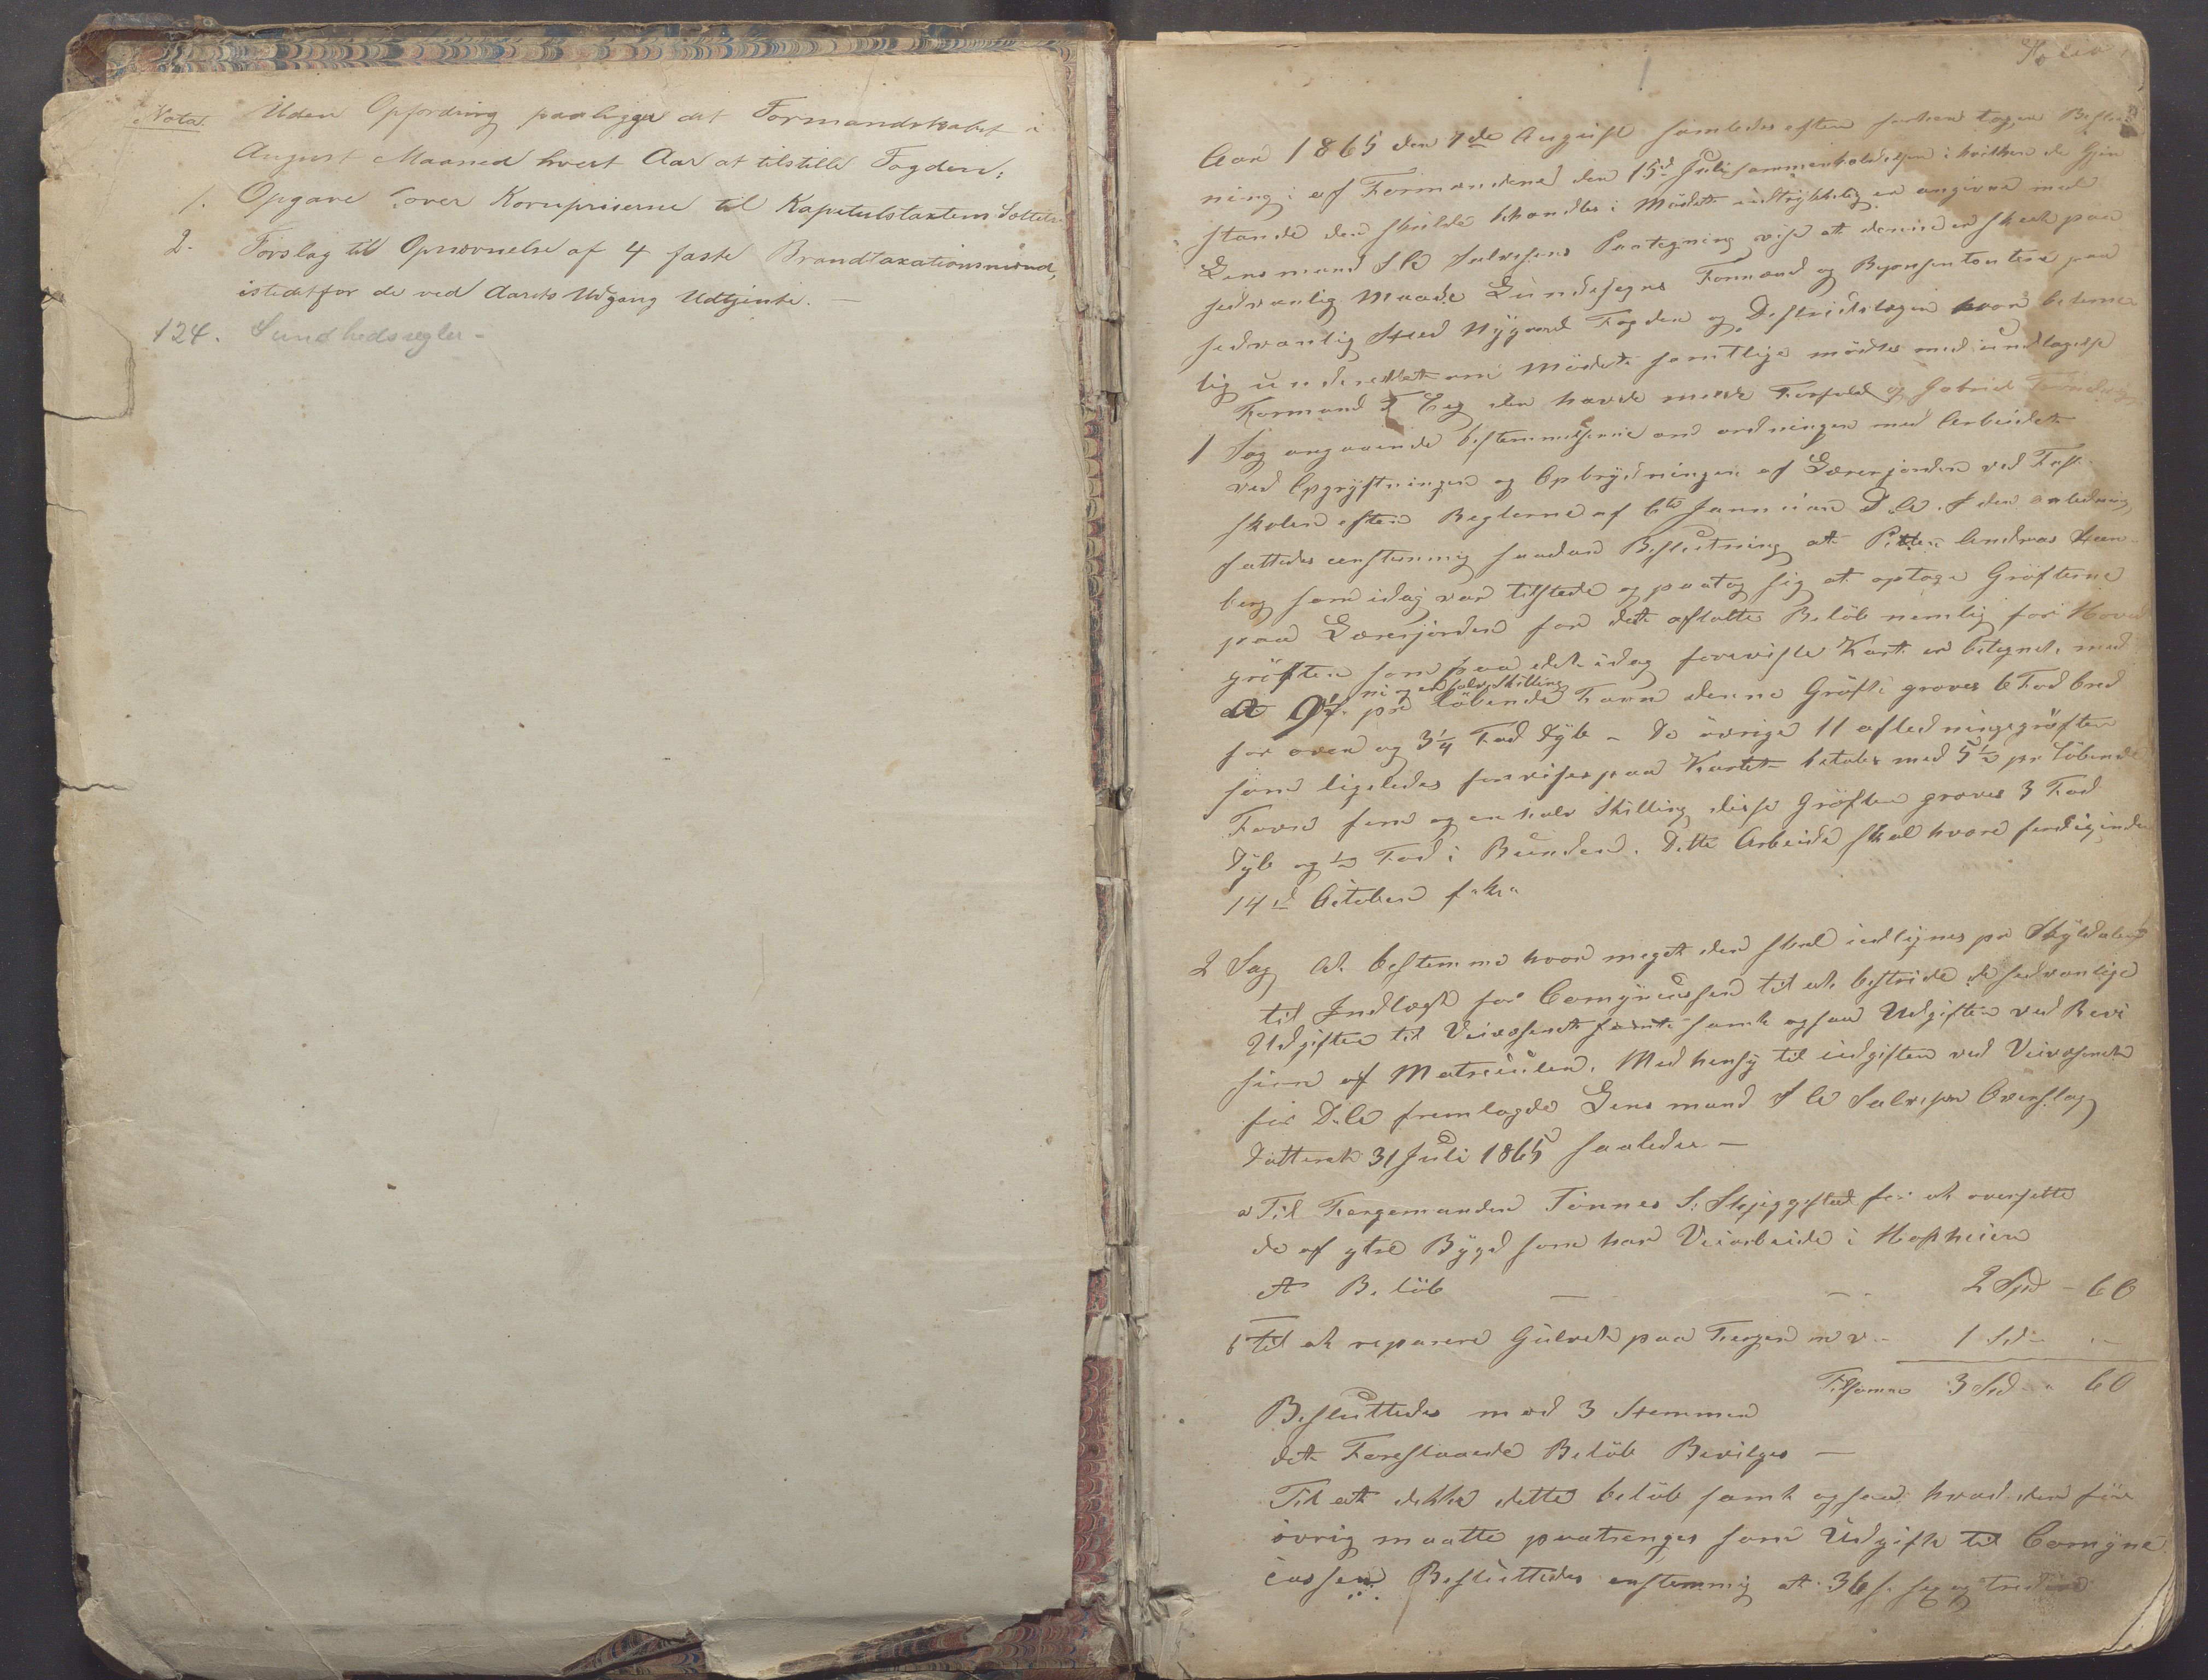 Nota. Uden Opfordring paaligger det Formandskabet i
August Maaned hvert Aar at tilstille Fogden:
1. Opgave over Kornpriserne til Kapitelstaxtens Sættelse
2. Forslag til Opnævnelse af 4 faste Brandtaxationsmænd,
istedetfor de ved Aarets Udgang Udtjente. —
124. Sundhedsregler -
Aar 1865 den 7de August samledes efter forhen tagen Beslut
ning af Formændene den 15d Juli sammenholdelsen i hvilken de Gjen
stande der skulde behandles i Mödet udtrykkelig er angivne med
Lensmand S A Salvesens Paategning vise at denne er skeet paa
sedvanlig Maade Lundesogns Formænd og Repræsentantere paa
sedvanlig Sted Nygaard Fogden og Distriktslægen hvor betime
lig underrettet om Mödet samtlige mödtes med undtagelse
Formand T Eeg der havde meldt Forfald og Gabriel
1 Sag angaaende bestemmelserne om ordningen med Arbeidet
ved Opgröftningen og Opbrydningen af Lærerjorden ved Fast-
skolen efter Reglerne af 6te Januar D.A. I den anledning
fattedes eenstemmig saadan Beslutning at Peder Andreas
berg som idag var tilstede og paatog sig at optage Gröfterne
paa Lærerjorden for det afsatte Belöb nemlig for Hoved
gröften som paa det idag foreviste Kart er betegnet med
ni og en halv Skilling
a 9½ pr löbende Favn denne Gröft graves 6 Fod bred
for oven og 3¼ Fod Dyb - De övrige 11 afledningsgröfter
som ligeledes forevises paa Kartet betales med 5½ pr löbende
Favn fem og en halv Skilling disse Gröfter graves 3 Fod
Dyb og ½ Fod i Bunden. Dette Arbeide skal være ferdig inden
14d October f. k.
2 Sag At bestemme hvor meget der skal udlignes pr Skylddaler
til Indlægt for Comynecassen til at bestride de sedvanlige
Udgifter til Veivæsenet samt samt ogsaa Udgifter ved Revi
sion af Matriculen. Med hensy til udgifter ved Veivæsenet
for D.A fremlagde Lensmand S A Salvesen Overslag
Datteret 31 Juli 1865 saaledes —
a Til Færgemanden Tönnes S. Skjeggestad for at oversette
de af ytre Bygd som har Veiarbeide i Hofheien
et Belöb — — 2 Spd - 60
b til at reparere Gulvet paa Færgen m v. - 1 Sd - -
Tilsamen 3 Sd - 60
Besluttedes med 3 Stemmer
det Foreslaaede Belöb Bevilges —
Til at dekke dette belöb samt ogsaa hvad der för
övrig maatte paatrenges som Udgift til Comyne
cassen Besluttedes enstemmig at 36 s. sex og tredive